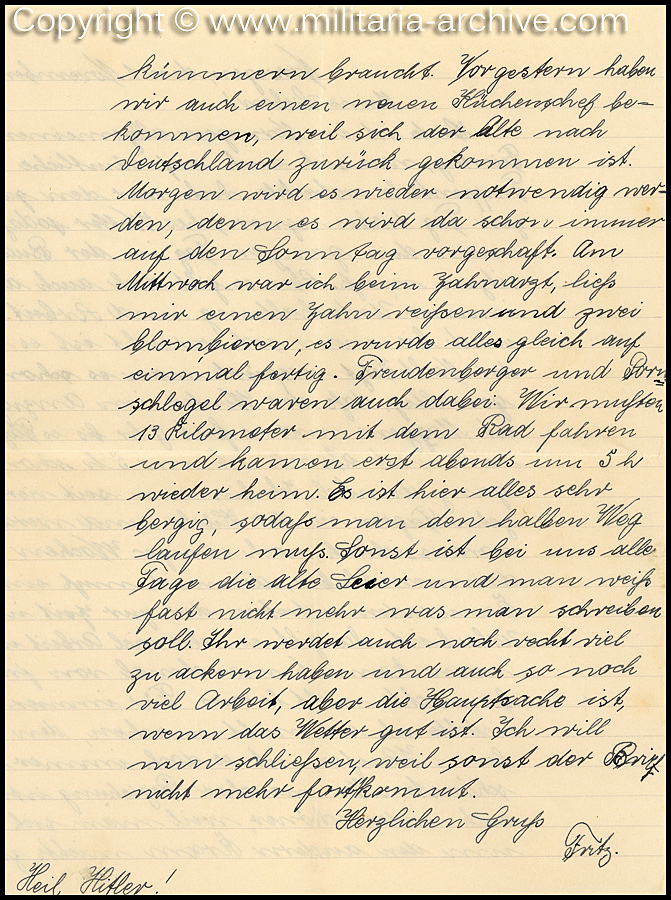 Copyright © www.militaria-archive.com
kümmern braucht. Vorgestern haben
wir auch einen neuen Küchenschef be-
kommen, weil sich der Alte nach
Deutschland zurück gekommen ist.
Morgen wird es wieder notwendig wer-
den, denn es wird da schon immer
auf den Sonntag vorgeschaft. Am
Mittwoch war ich beim Zahnarzt, liess
mir einen Zahn reissen und zwei
blombieren, es wurde alles gleich auf
einmal fertig. Freudenberger und
schlegel waren auch dabei. Wir mußten
13 Kilometer mit dem Rad fahren
und kamen erst abends um 5 h
wieder heim. Es ist hier alles sehr
bergig, sodaß man den halben Weg
laufen muß. Sonst ist bei uns alle
Tage die alte Leier und man weiß
fast nicht mehr was man schreiben
soll. Ihr werdet auch noch recht viel
zu ackern haben und auch so noch
viel Arbeit, aber die Hauptsache ist,
wenn das Wetter gut ist. Ich will
nun schliessen, weil sonst der Brief
nicht mehr fortkommt.
Herzlichen Gruß
Fritz.
Heil Hitler!